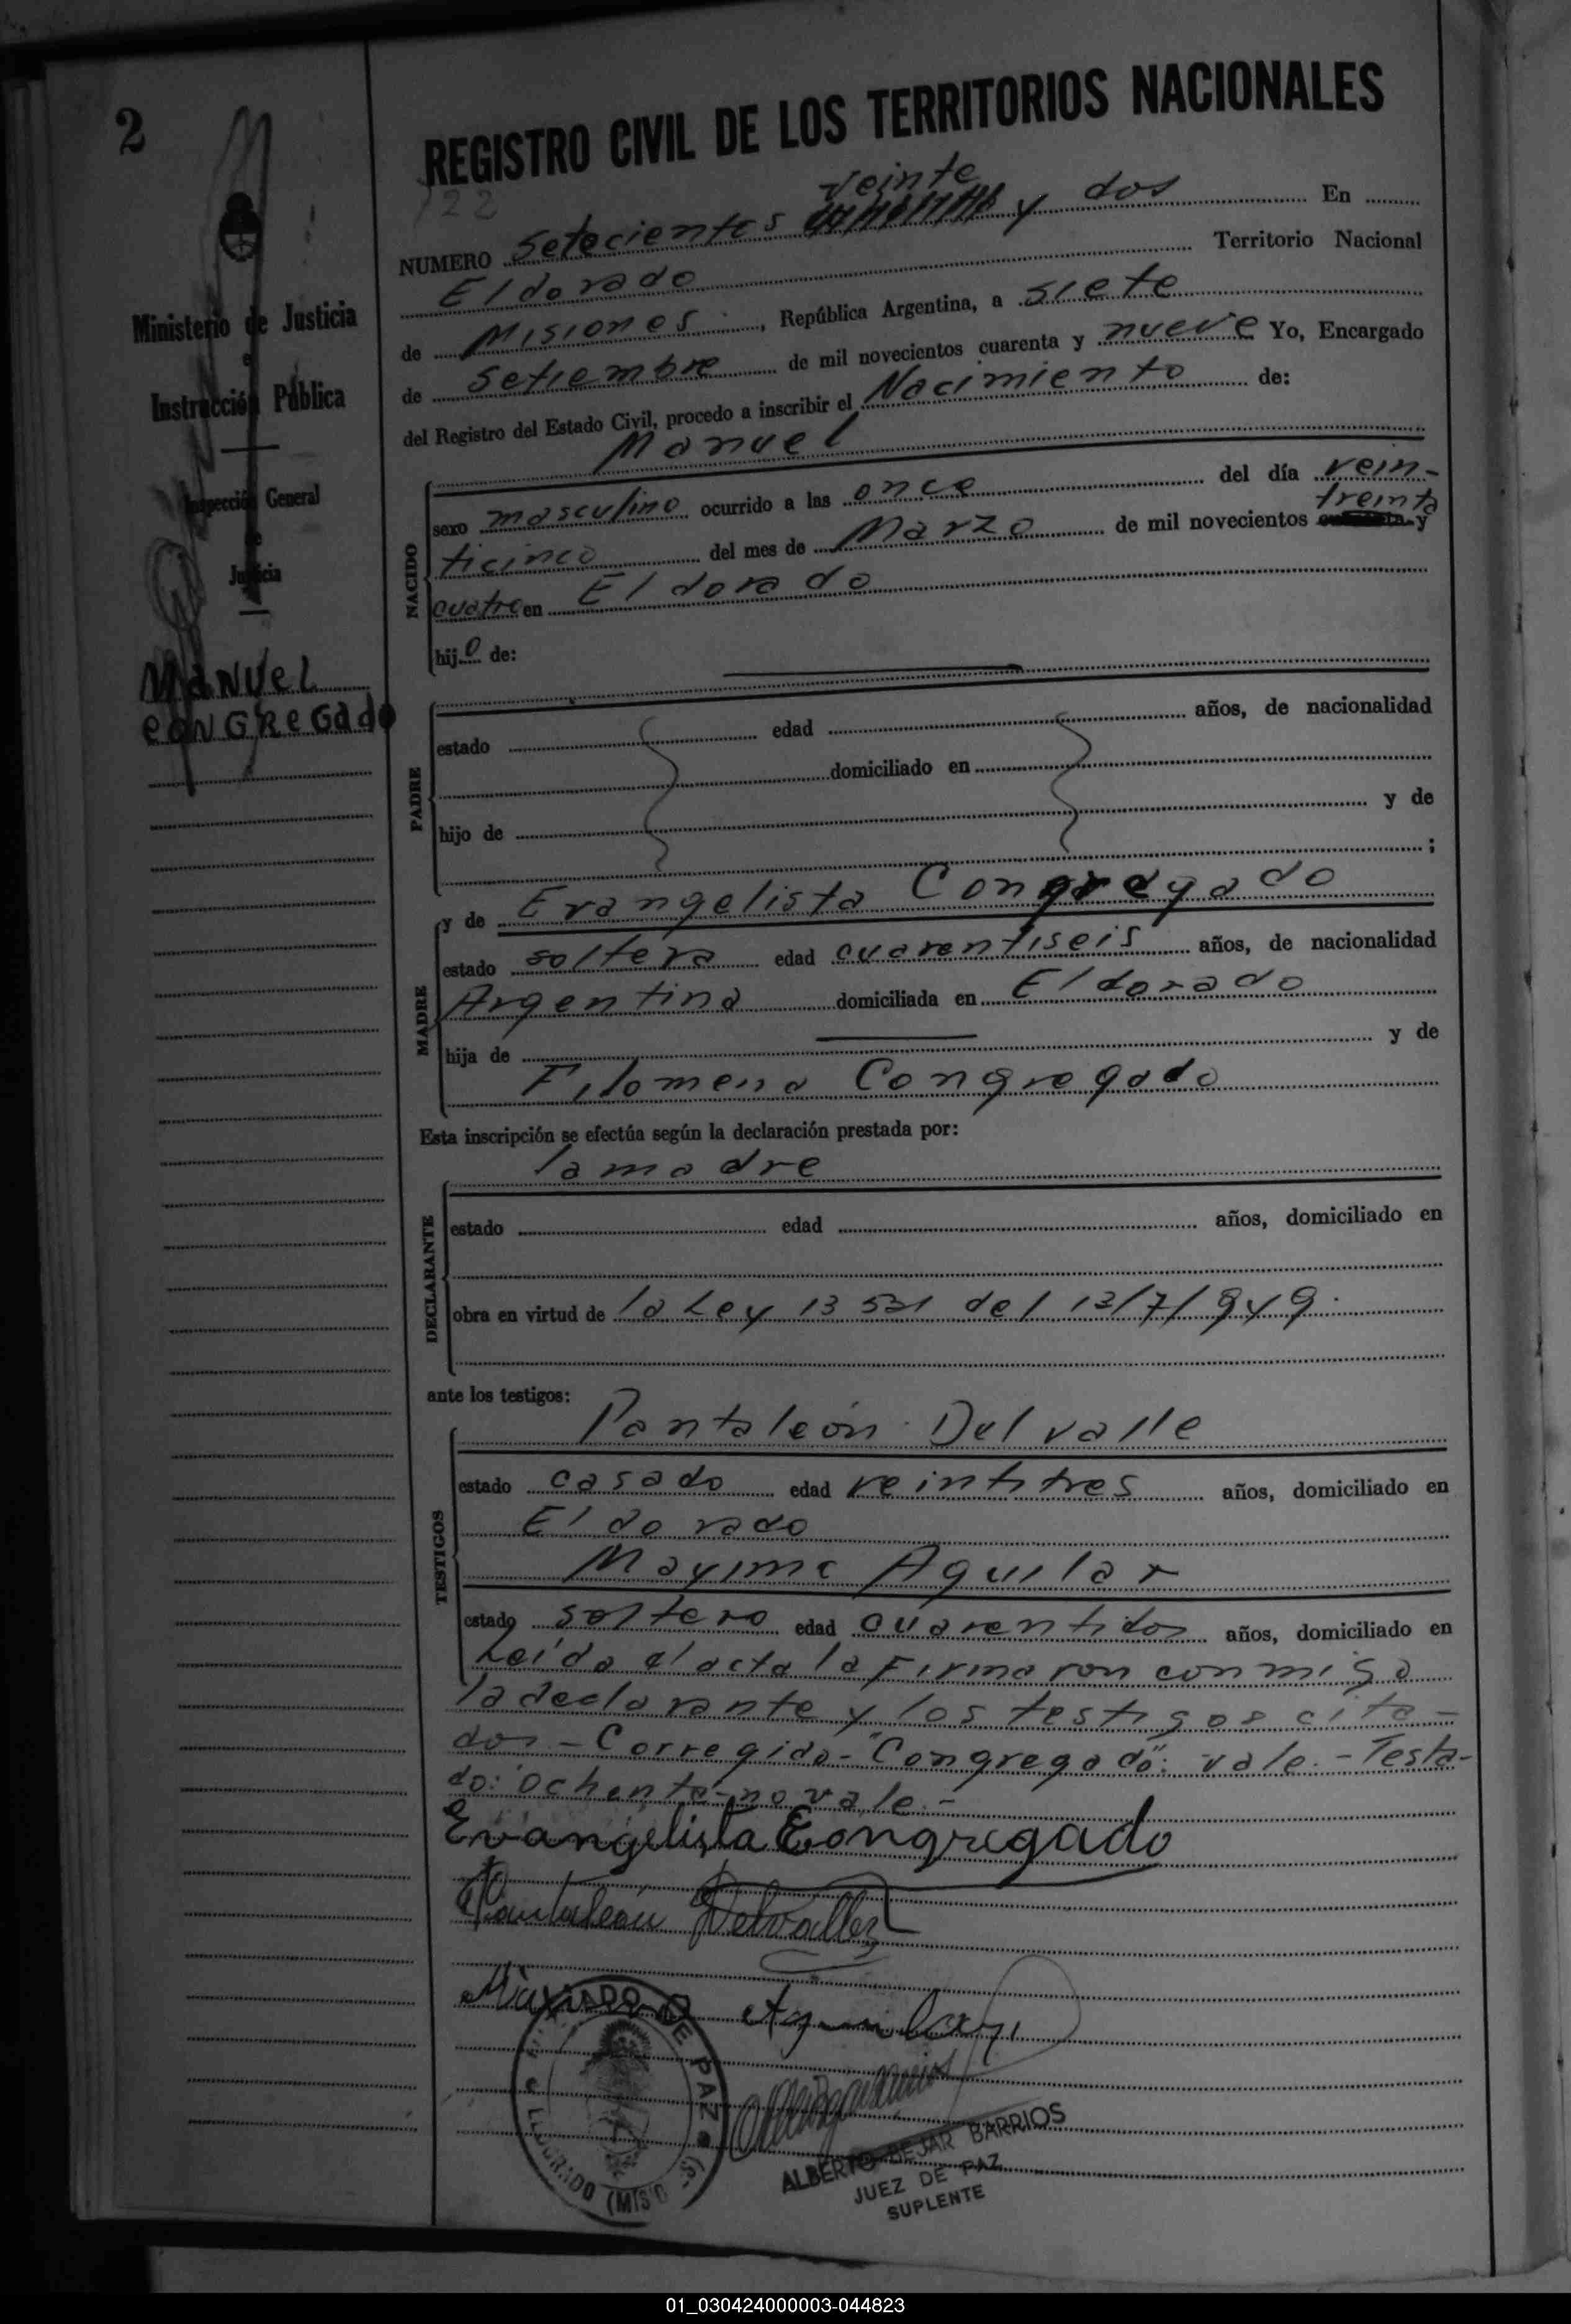 2
REGISTRO CIVIL DE LOS TERRITORIOS NACIONALES
722
veinte
NUMERO Setecientos y dos En
Eldorado Territorio Nacional
de Misiones, República Argentina, a siete
de Setiembre de mil novecientos cuarenta y nueve Yo, Encargado
del Registro del Estado Civil, procedo a inscribir el Nacimiento de:
Manuel
Ministerio de Justicia
e
Instrucción Pública
Inspección General
de
Justicia
MANUEL
CONGREGAdo
NACIDO
sexo masculino ocurrido a las once del día vein-
treinta
ticinco del mes de Marzo de mil novecientos cuarenta y
cuatro en Eldorado
hijo de:
PADRE
estado edad años, de nacionalidad
domiciliado en
hijo de y de
;
MADRE
y de Evangelista Congregado
estado soltera edad cuarentiseis años, de nacionalidad
Argentina domiciliada en Eldorado
hija de y de
Filomena Congregado
Esta inscripción se efectúa según la declaración prestada por:
la madre
DECLARANTE
estado edad años, domiciliado en
obra en virtud de la Ley 13 531 del 13/7/949.
ante los testigos:
TESTIGOS
Pantaleón Delvalle
estado casado edad veintitres años, domiciliado en
Eldorado
Maximo Aguilar
estado soltero edad cuarentidos años, domiciliado en
Leida el acta la Firmaron conmigo
la declarante y los testigos cita-
dos - Corregido - "Congregado": vale. - Testa-
do: ochenta - no vale. -
Evangelista Congregado
Pantaleón Delvallez
Maximo Aguilar
JUZGADO DE PAZ
ELDORADO (MIS
ALBERTO BEJAR BARRIOS
JUEZ DE PAZ
SUPLENTE
01_030424000003-044823